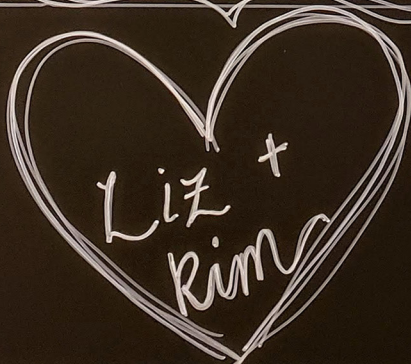 Liz +
Rim